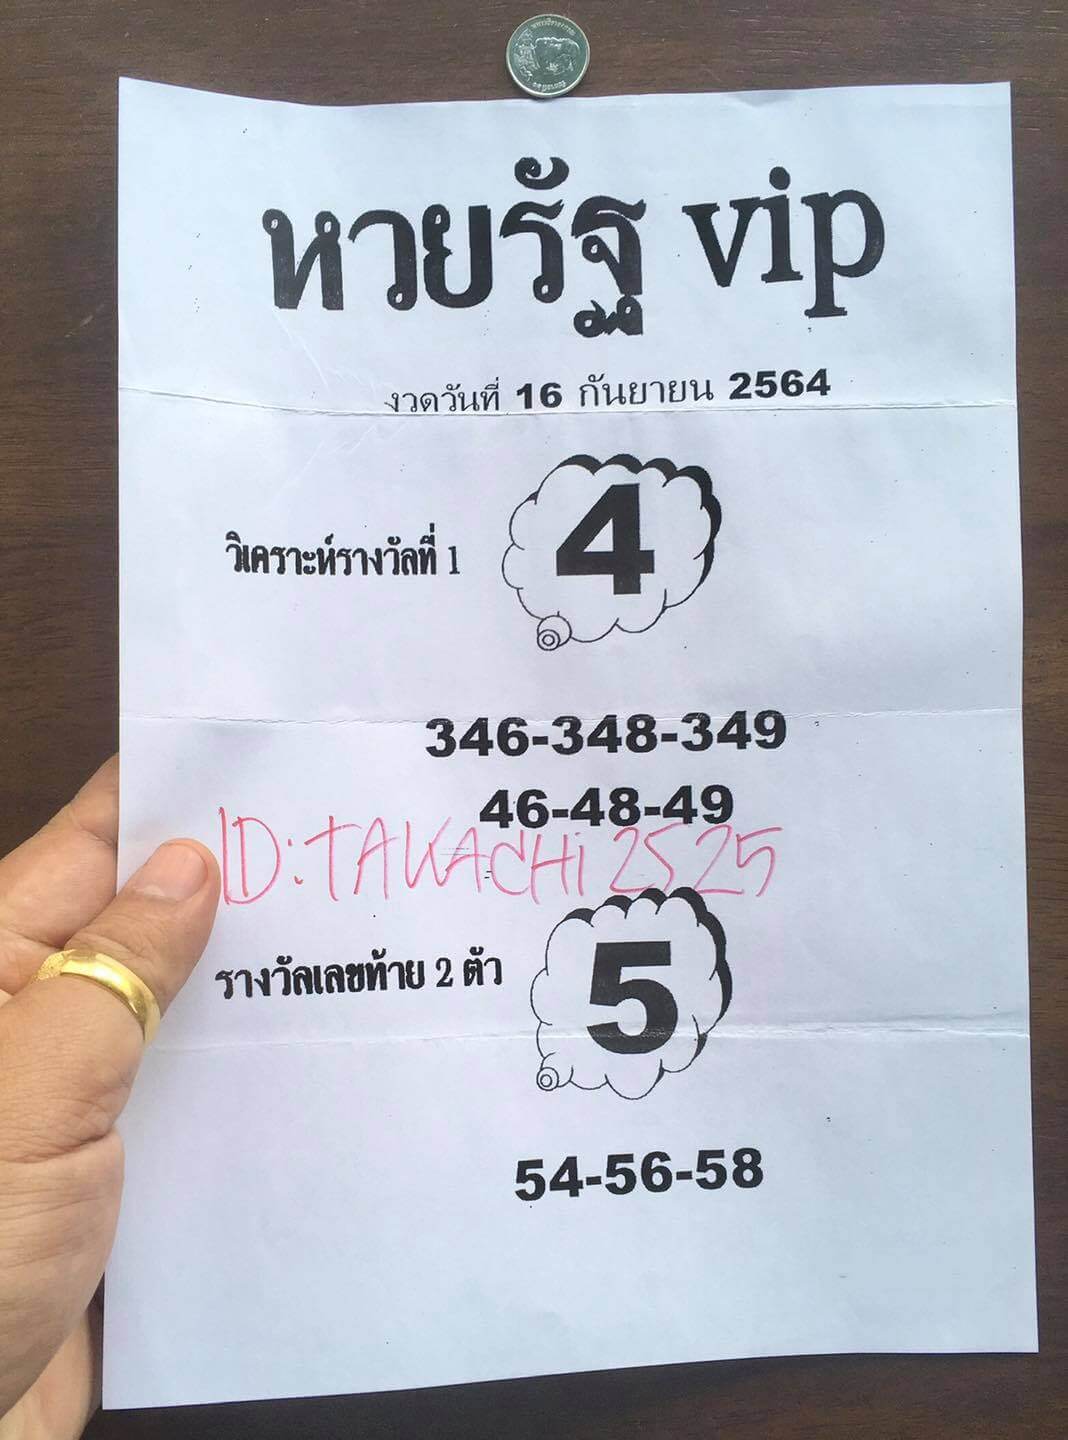 หวยรัฐ vip
งวดวันที่ 16 กันยายน 2564
วิเคราะห์รางวัลที่ 1
4
346-348-349
46-48-49
ID:TAKACHI2525
รางวัลเลขท้าย 2 ตัว
5
54-56-58